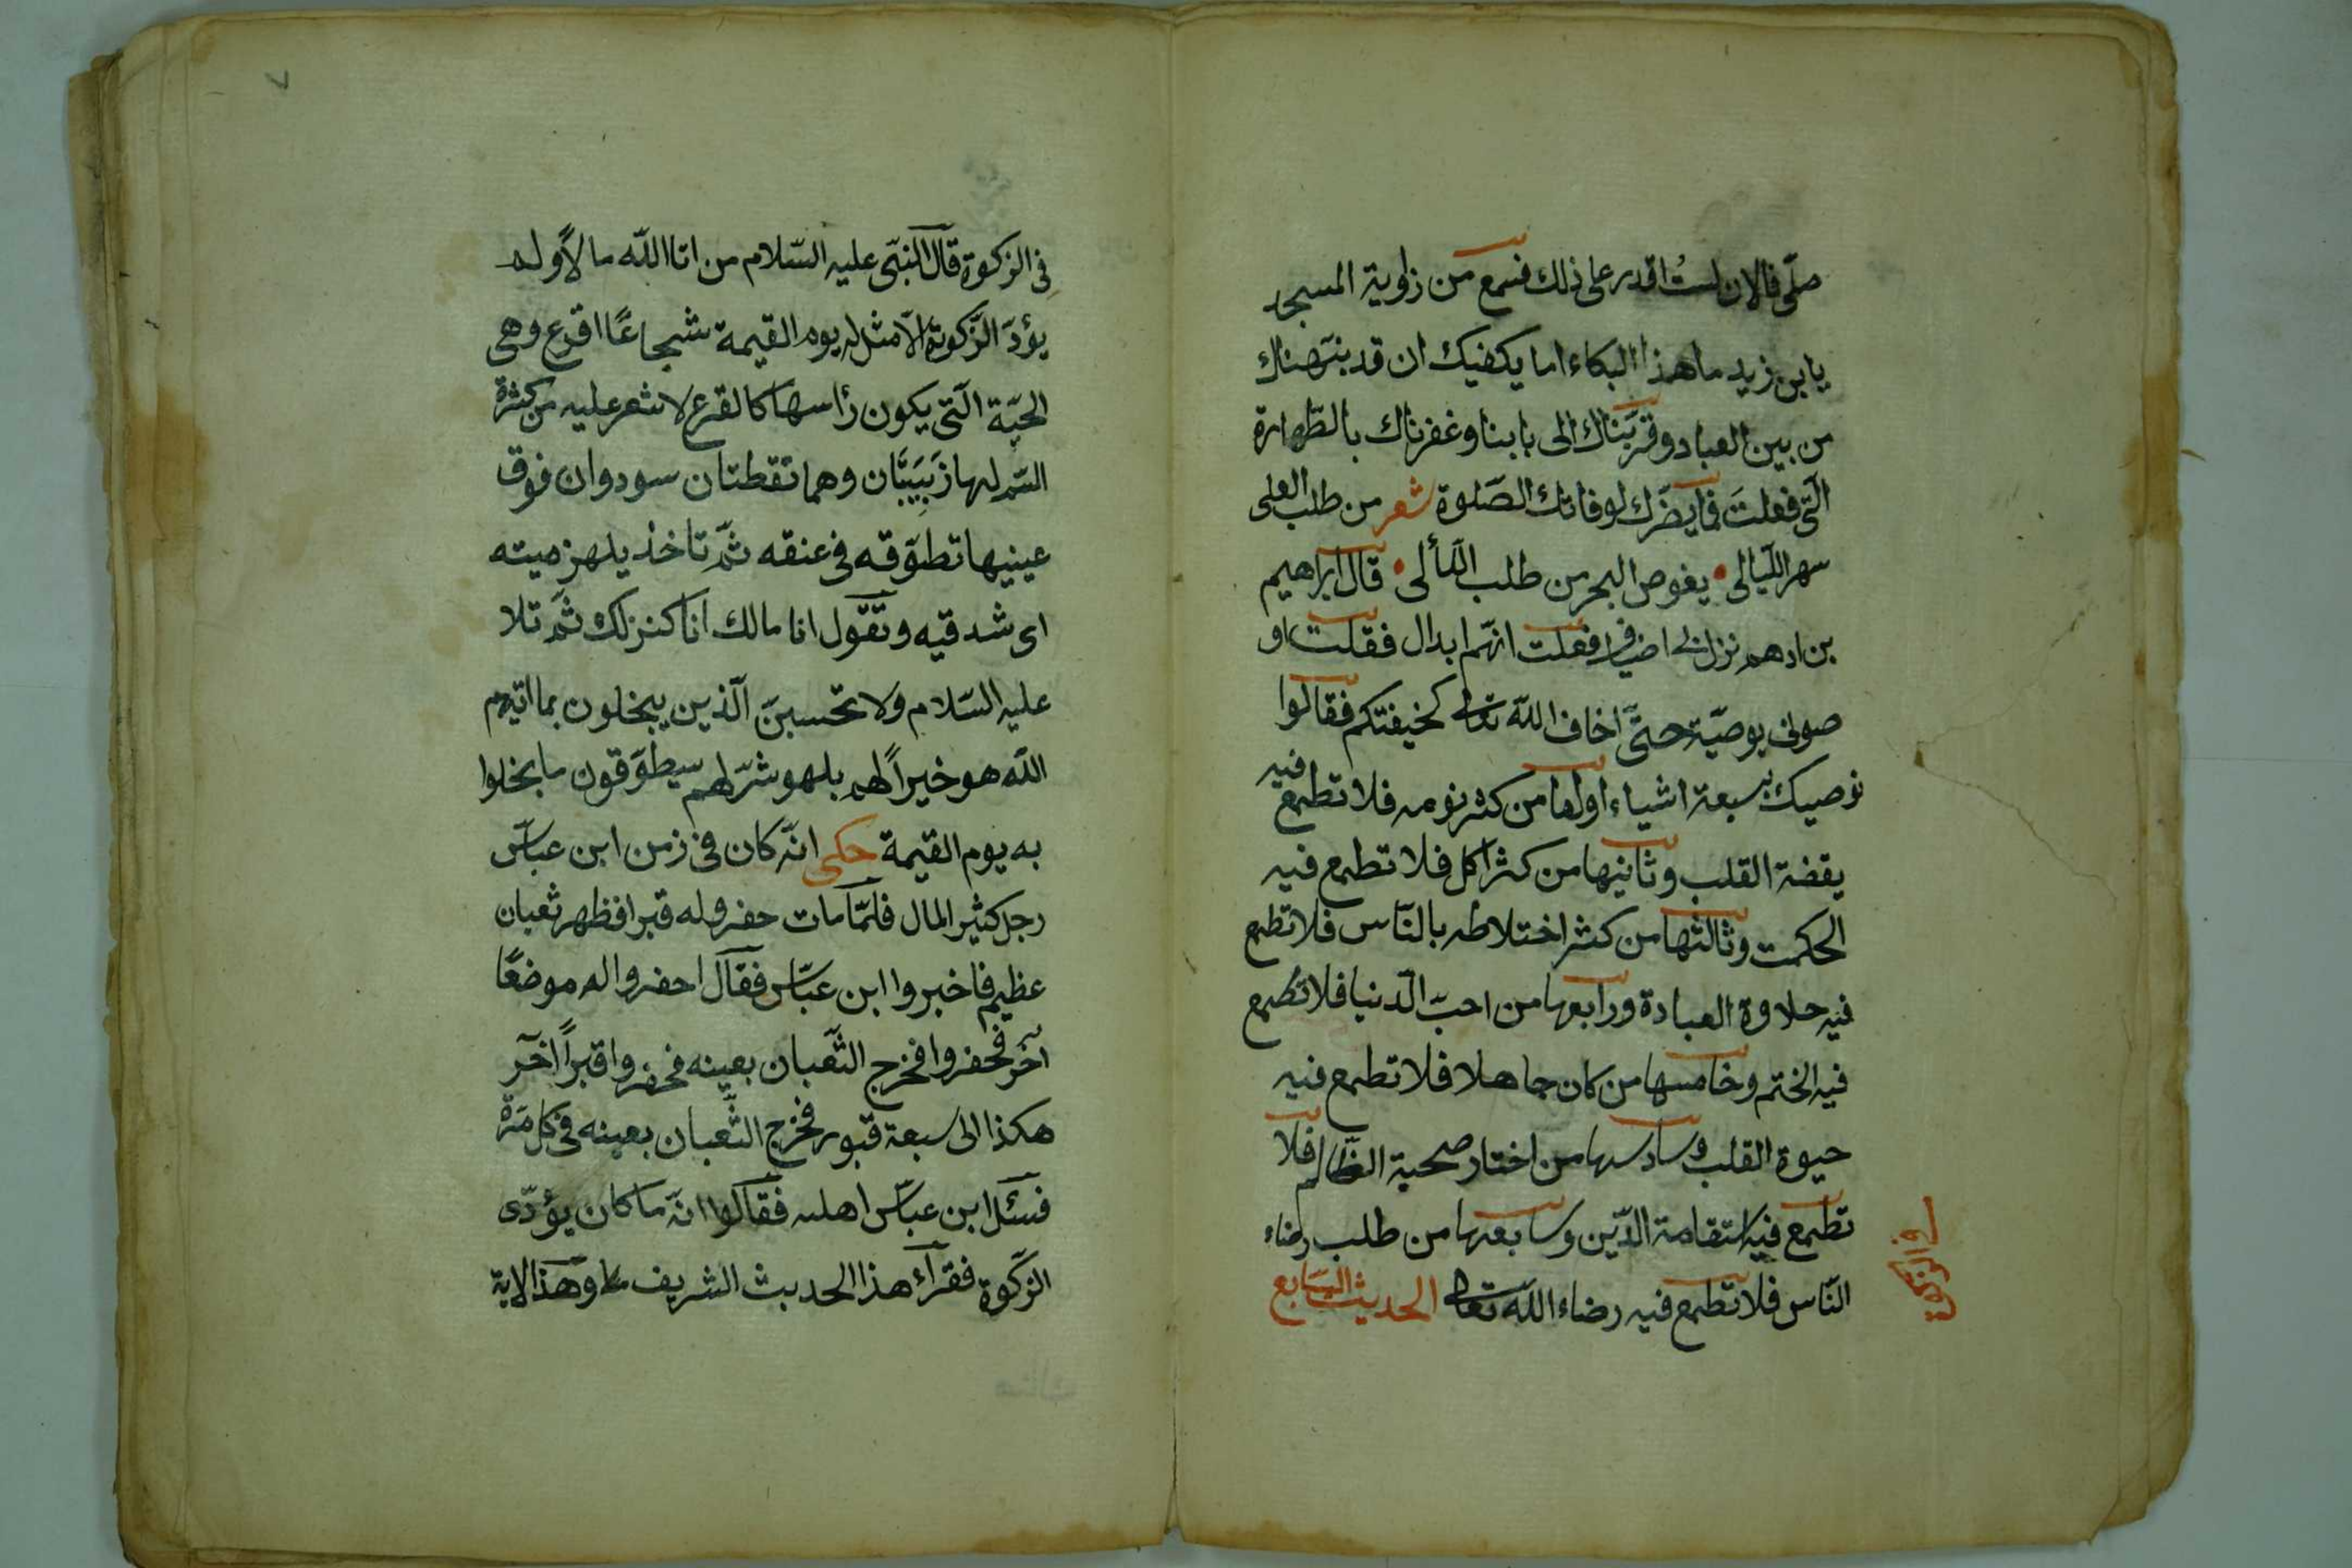 صلّى فالان لستُ اقدر على ذلك فسمع من زاوية المسجد
يا بن زيد ما هذا البكاء اما يكفيك ان قد بنتهناك
من بين العباد وقرّبناك الى بابنا وغفرناك بالطّهارة
الّتى فعلتَ فايضرّك لو فاتك الصّلوة شعر من طلب العلى
سهر اللّيالى • يغوص البحر من طلب اللّألى • قال ابراهيم
بن ادهم نزل لى اضياف فعلت انهم ابدال فقلت او
صونى بوصيّة حتّى اخاف الله تعالى كخيفتكم فقالوا
نوصيك بسبعة اشياء اولها من كثر نومه فلا تطمع فيه
يقضة القلب وثانيها من كثر اكل فلا تطمع فيه
الحكمت وثالثها من كثر اختلاطه بالنّاس فلا تطمع
فيه حلاوة العبادة ورابعها من احبّ الدّنيا فلا تطمع
فيه الختم وخامسها من كان جاهلا فلا تطمع فيه
حيوة القلب وسادسها من اختار صحبة الظّالم فلا
تطمع فيه استقامة الدّين وسابعها من طلب رضاء
النّاس فلا تطمع فيه رضاء الله تعالى الحديث السّابع
فى الزكوة
فى الزكوة قال النّبىّ عليه السّلام من اتا الله مالاً ولم
يؤدّ الزّكوة الّا مثل له يوم القيمة شجاعًا اقرع وهى
الحيّة الّتى يكون رأسها كالقرع لا شعر عليه من كثرة
السّم لها زَبَيبَتان وهما نقطتان سودوان فوق
عينيها تطوّقه فى عنقه ثمّ تاخذ يلهزميته
اى شدقيه وتقول انا مالك انا كنزك ثمّ تلا
عليه السّلام ولا تحسبنّ الّذين يبخلون بما اتيهم
الله هو خيراً لهم بل هو شرّ لهم سيطوّقون ما بخلوا
به يوم القيمة حكى انّه كان فى زمن ابن عبّاس
رجل كثير المال فلمّا مات حفروله قبرا فظهر ثعبان
عظيم فاخبروا ابن عبّاس فقال احفروا له موضعًا
آخر فحفروا فخرج الثّعبان بعينه فحفروا قبراً آخر
هكذا الى سبعة قبور فخرج الثّعبان بعينه فى كل مرّة
فسئل ابن عبّاس اهله فقالوا انّه ما كان يؤدّى
الزّكوة فقرأء هذا الحديث الشريف وهذ الاية